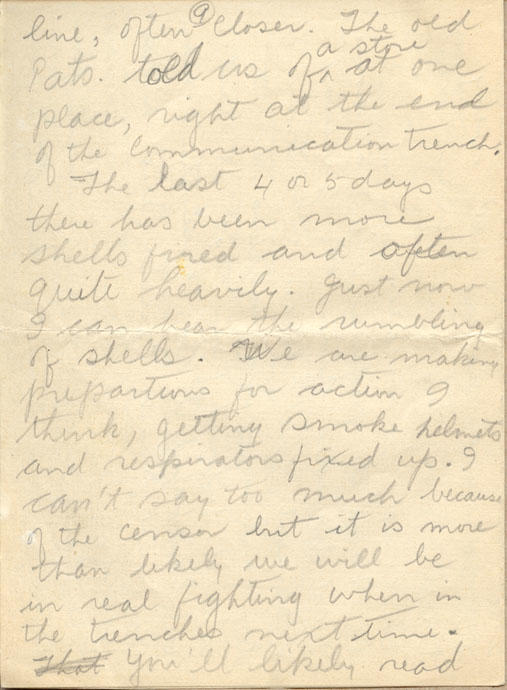 line, often closer. The old
Pats. told us of a store at one
place, right at the end
of the communication trench.
The last 4 or 5 days
there has been more
shells fired and often
quite heavily. Just now
I can hear the rumbling
of shells. We are making
prepartions for action I
think, getting smoke helmets
and respirators fixed up. I
can't say too much because
of the censor but it is more
than likely we will be
in real fighting when in
the trenches next time.
That You'll likely read